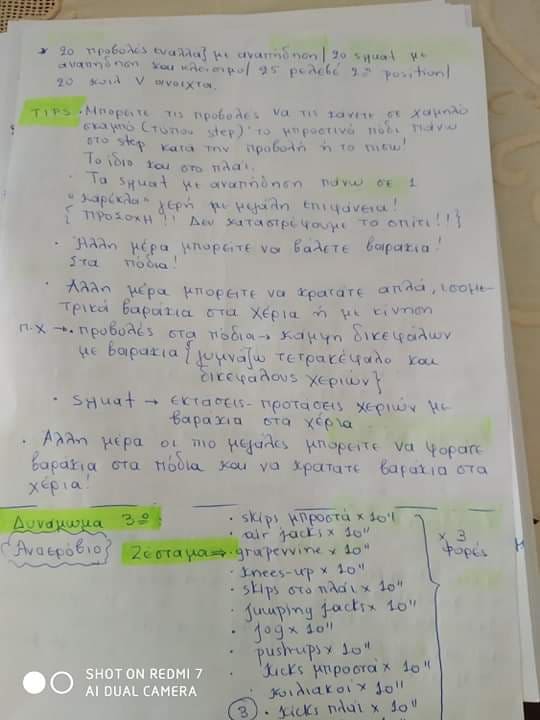 * 20 προβολές εναλλάξ με αναπήδηση/ 20 squat με
αναπήδηση και κλείσιμο/ 25 ρελεβέ 2ª position/
20 κοιλ V ανοιχτα.
TIPS · Μπορείτε τις προβολές να τις κάνετε σε χαμηλό
σκαμπό (τύπου step) το μπροστινό πόδι πάνω
στο step κατά την προβολή ή το πίσω!
Το ίδιο και στο πλάι.
· Τα squat με αναπήδηση πάνω σε 1
"καρέκλα" γερή με μεγάλη επιφάνεια!
{ΠΡΟΣΟΧΗ!! Δεν καταστρέφουμε το σπίτι!!}
· Άλλη μέρα μπορείτε να βάλετε βαράκια!
Στα πόδια!
· Άλλη μέρα μπορείτε να κρατάτε απλά, ισομε-
τρικά βαράκια στα χέρια ή με κίνηση
π.χ → · προβολές στα πόδια → κάμψη δικεφάλων
με βαράκια {γυμνάζω τετρακέφαλο και
δικεφάλους χεριών}
· squat → εκτάσεις-προτάσεις χεριών με
βαράκια στα χέρια
· Άλλη μέρα οι πιο μεγάλες μπορείτε να φοράτε
βαράκια στα πόδια και να κρατάτε βαράκια στα
χέρια!
Δυνάμωμα 3º
Αναερόβιο
Ζέσταμα ⇒
· skips μπροστά x 10"
· air jacks x 10"
grapevinne x 10"
· knees-up x 10"
· skips στο πλάι x 10"
· jumping jacks x 10"
· jog x 10"
· pushups x 10"
· kicks μπροστά x 10"
· κοιλιακοί x 10"
③ · kicks πλάι x 10"
x 3
φορές
SHOT ON REDMI 7
AI DUAL CAMERA